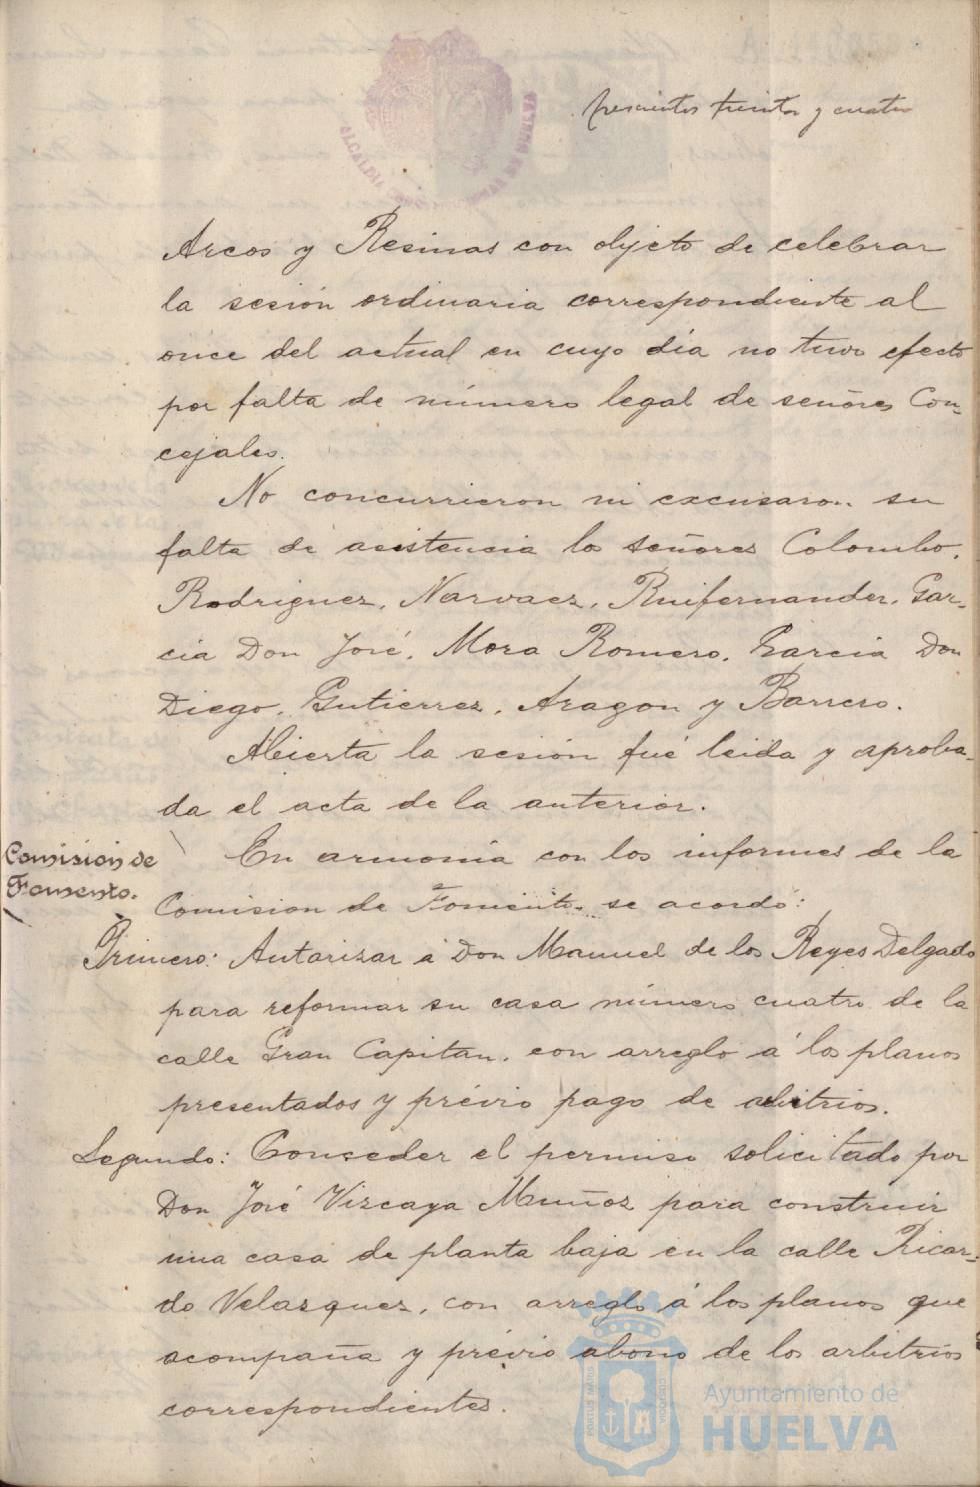 trescientos treinta y cuatro
Arcos y Resinas con objeto de celebrar
la sesión ordinaria correspondiente al
once del actual en cuyo día no tuvo efecto
por falta de número legal de señores Con-
cejales.
No concurrieron ni excusaron su
falta de asistencia los señores Colombo,
Rodriguez, Narvaez, Ruifernandez, Gar-
cia Don José, Mora Romero, Garcia Don
Diego, Gutierrez, Aragon y Barrero.
Abierta la sesión fué leida y aproba-
da el acta de la anterior.
Comisión de
Fomento.
En armonía con los informes de la
Comision de Fomento se acordó:
Primero: Autorizar á Don Manuel de los Reyes Delgado
para reformar su casa número cuatro de la
calle Gran Capitan, con arreglo á los planos
presentados y prévio pago de arbitrios.
Segundo: Conceder el permiso solicitado por
Don José Vizcaya Muñoz para construir
una casa de planta baja en la calle Ricar-
do Velazquez, con arreglo á los planos que
acompaña y prévio abono de los arbitrios
correspondientes.
Ayuntamiento de
HUELVA